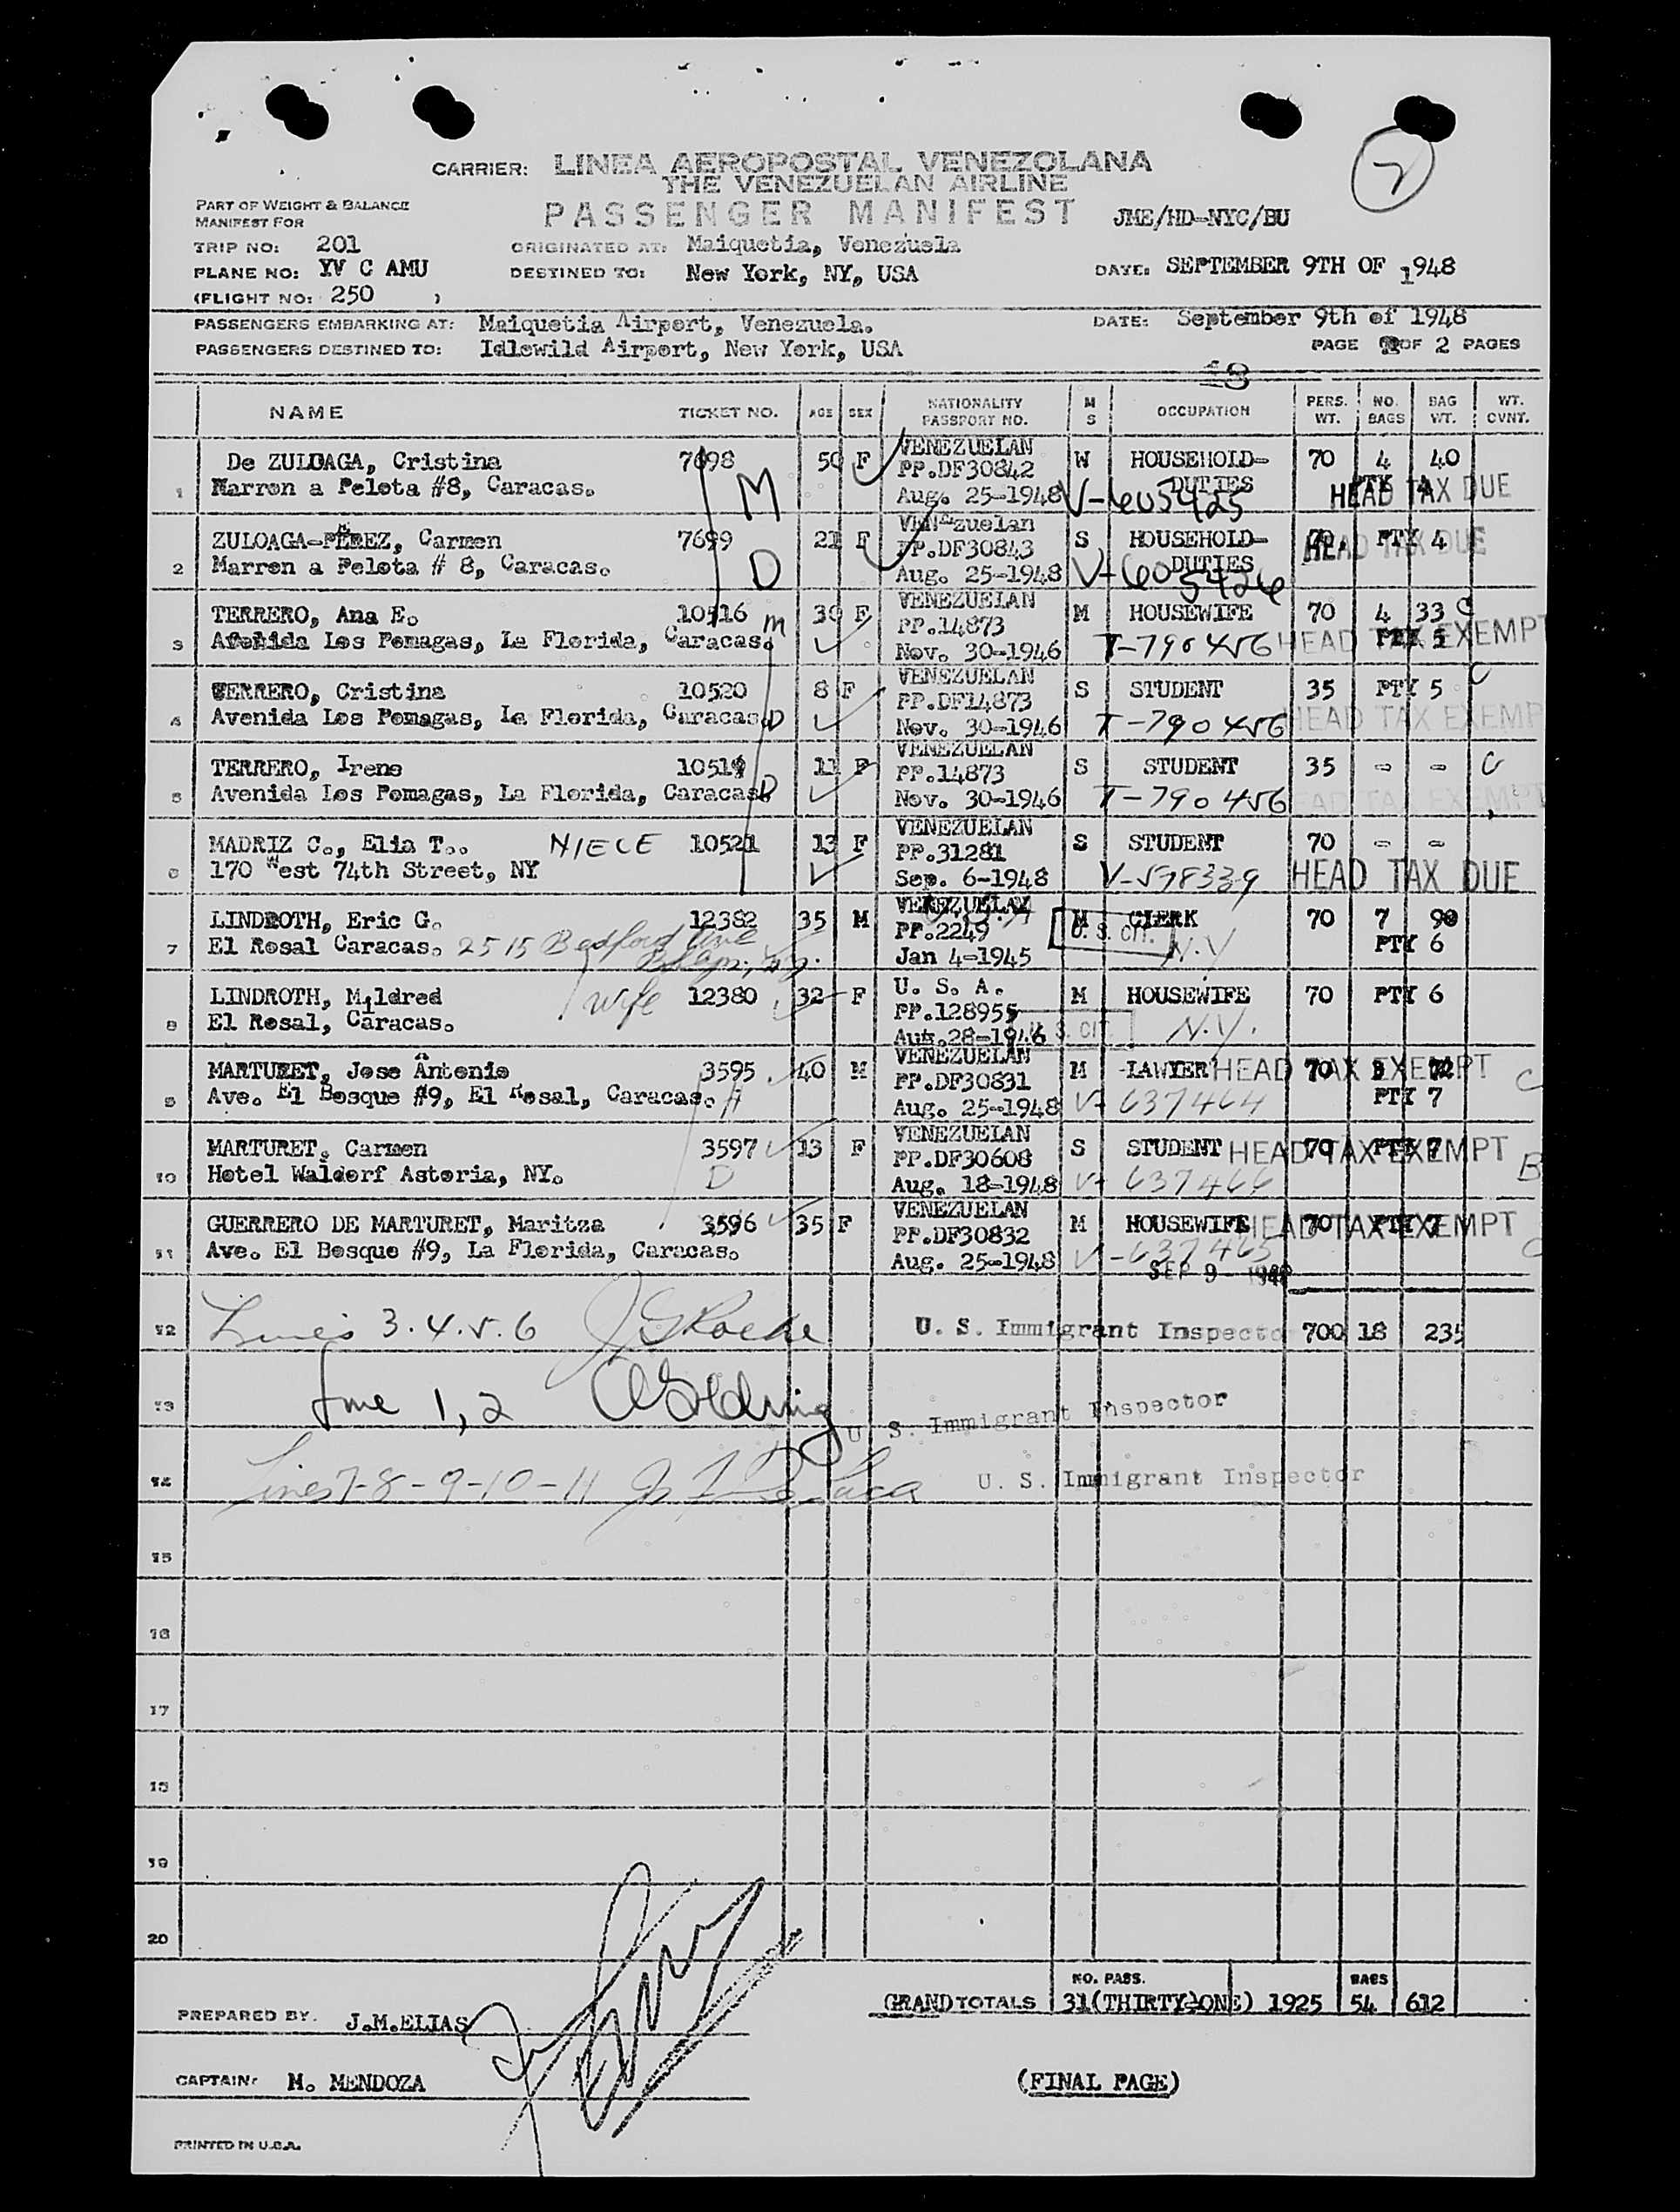 2
CARRIER: LINEA AEROPOSTAL VENEZOLANA
THE VENEZUELAN AIRLINE
PASSENGER MANIFEST JME/HD-NYC/BU
PART OF WEIGHT & BALANCE
MANIFEST FOR
TRIP NO: 201 ORIGINATED AT: Maiquetia, Venezuela
PLANE NO: YV C AMU DESTINED TO: New York, NY, USA DATE: SEPTEMBER 9TH OF 1948
(FLIGHT NO: 250 )
PASSENGERS EMBARKING AT: Maiquetia Airport, Venezuela. DATE: September 9th of 1948
PASSENGERS DESTINED TO: Idlewild Airport, New York, USA PAGE OF 2 PAGES
NAME TICKET NO. AGE SEX NATIONALITY PASSPORT NO. M S OCCUPATION PERS. WT. NO. BAGS BAG WT. WT. CVNT.
De ZULOAGA, Cristina 7698 50 F VENEZUELAN W HOUSEHOLD- 70 4 40
PP.DF30842 DUTIES PTY 4
1 Marron a Pelota #8, Caracas. M Aug. 25-1948 V-605425 HEAD TAX DUE
ZULOAGA-PEREZ, Carmen 7699 21 F VENEzuelan S HOUSEHOLD- 70 PTY 4
PP.DF30843 DUTIES HEAD TAX DUE
2 Marron a Pelota # 8, Caracas. D Aug. 25-1948 V-605426
TERRERO, Ana E. 10516 30 F VENEZUELAN M HOUSEWIFE 70 4 33 C
PP.14873 PTY 5
3 Avenida Los Pomagas, La Florida, Caracas. m Nov. 30-1946 T-790456 HEAD TAX EXEMPT
TERRERO, Cristina 10520 8 F VENEZUELAN S STUDENT 35 PTY 5 C
PP.DF14873
4 Avenida Los Pomagas, La Florida, Caracas. D Nov. 30-1946 T-790456 HEAD TAX EXEMP
TERRERO, Irene 10519 11 F VENEZUELAN S STUDENT 35 - - C
PP.14873
5 Avenida Los Pomagas, La Florida, Caracas. D Nov. 30-1946 T-790456 HEAD TAX EXEMPT
MADRIZ C., Elia T.. NIECE 10521 13 F VENEZUELAN S STUDENT 70 - -
PP.31281
6 170 West 74th Street, NY Sep. 6-1948 V-598339 HEAD TAX DUE
LINDROTH, Eric G. 12382 35 M VENEZUELAN U.S.A M CLERK 70 7 90
PP.2249 U. S. CIT. PTY 6
7 El Rosal Caracas. 2515 Bedford Ave Jan 4-1945 N.Y
LINDROTH, Mildred wife 12380 32 F U. S. A. M HOUSEWIFE 70 PTY 6
PP.128955
8 El Rosal, Caracas. Aug.28-1946 U. S. CIT. N.Y.
MARTURET, Jose Antonio 3595 40 M VENEZUELAN M LAWYER HEAD TAX EXEMPT 70 3 72 C
PP.DF30831 PTY 7
9 Ave. El Bosque #9, El Rosal, Caracas. H Aug. 25-1948 V-637464
MARTURET, Carmen 3597 13 F VENEZUELAN S STUDENT HEAD TAX EXEMPT 70 PTY 7 B
PP.DF30608
10 Hotel Waldorf Astoria, NY. D Aug. 18-1948 V-637466
GUERRERO DE MARTURET, Maritza 3596 35 F VENEZUELAN M HOUSEWIFE HEAD TAX EXEMPT 70 PTY 7 C
PP.DF30832
11 Ave. El Bosque #9, La Florida, Caracas. W Aug. 25-1948 V-637465
SEP 9 1948
12 Lines 3.4.5.6 J G Roche U. S. Immigrant Inspector 700 18 235
13 Line 1, 2 U. S. Immigrant Inspector
14 Lines 7-8-9-10-11 U. S. Immigrant Inspector
15
16
17
18
19
20
NO. PASS. BAGS
GRAND TOTALS 31(THIRTY-ONE) 1925 54 612
PREPARED BY. J.M.ELIAS
CAPTAIN: M. MENDOZA (FINAL PAGE)
PRINTED IN U.S.A.